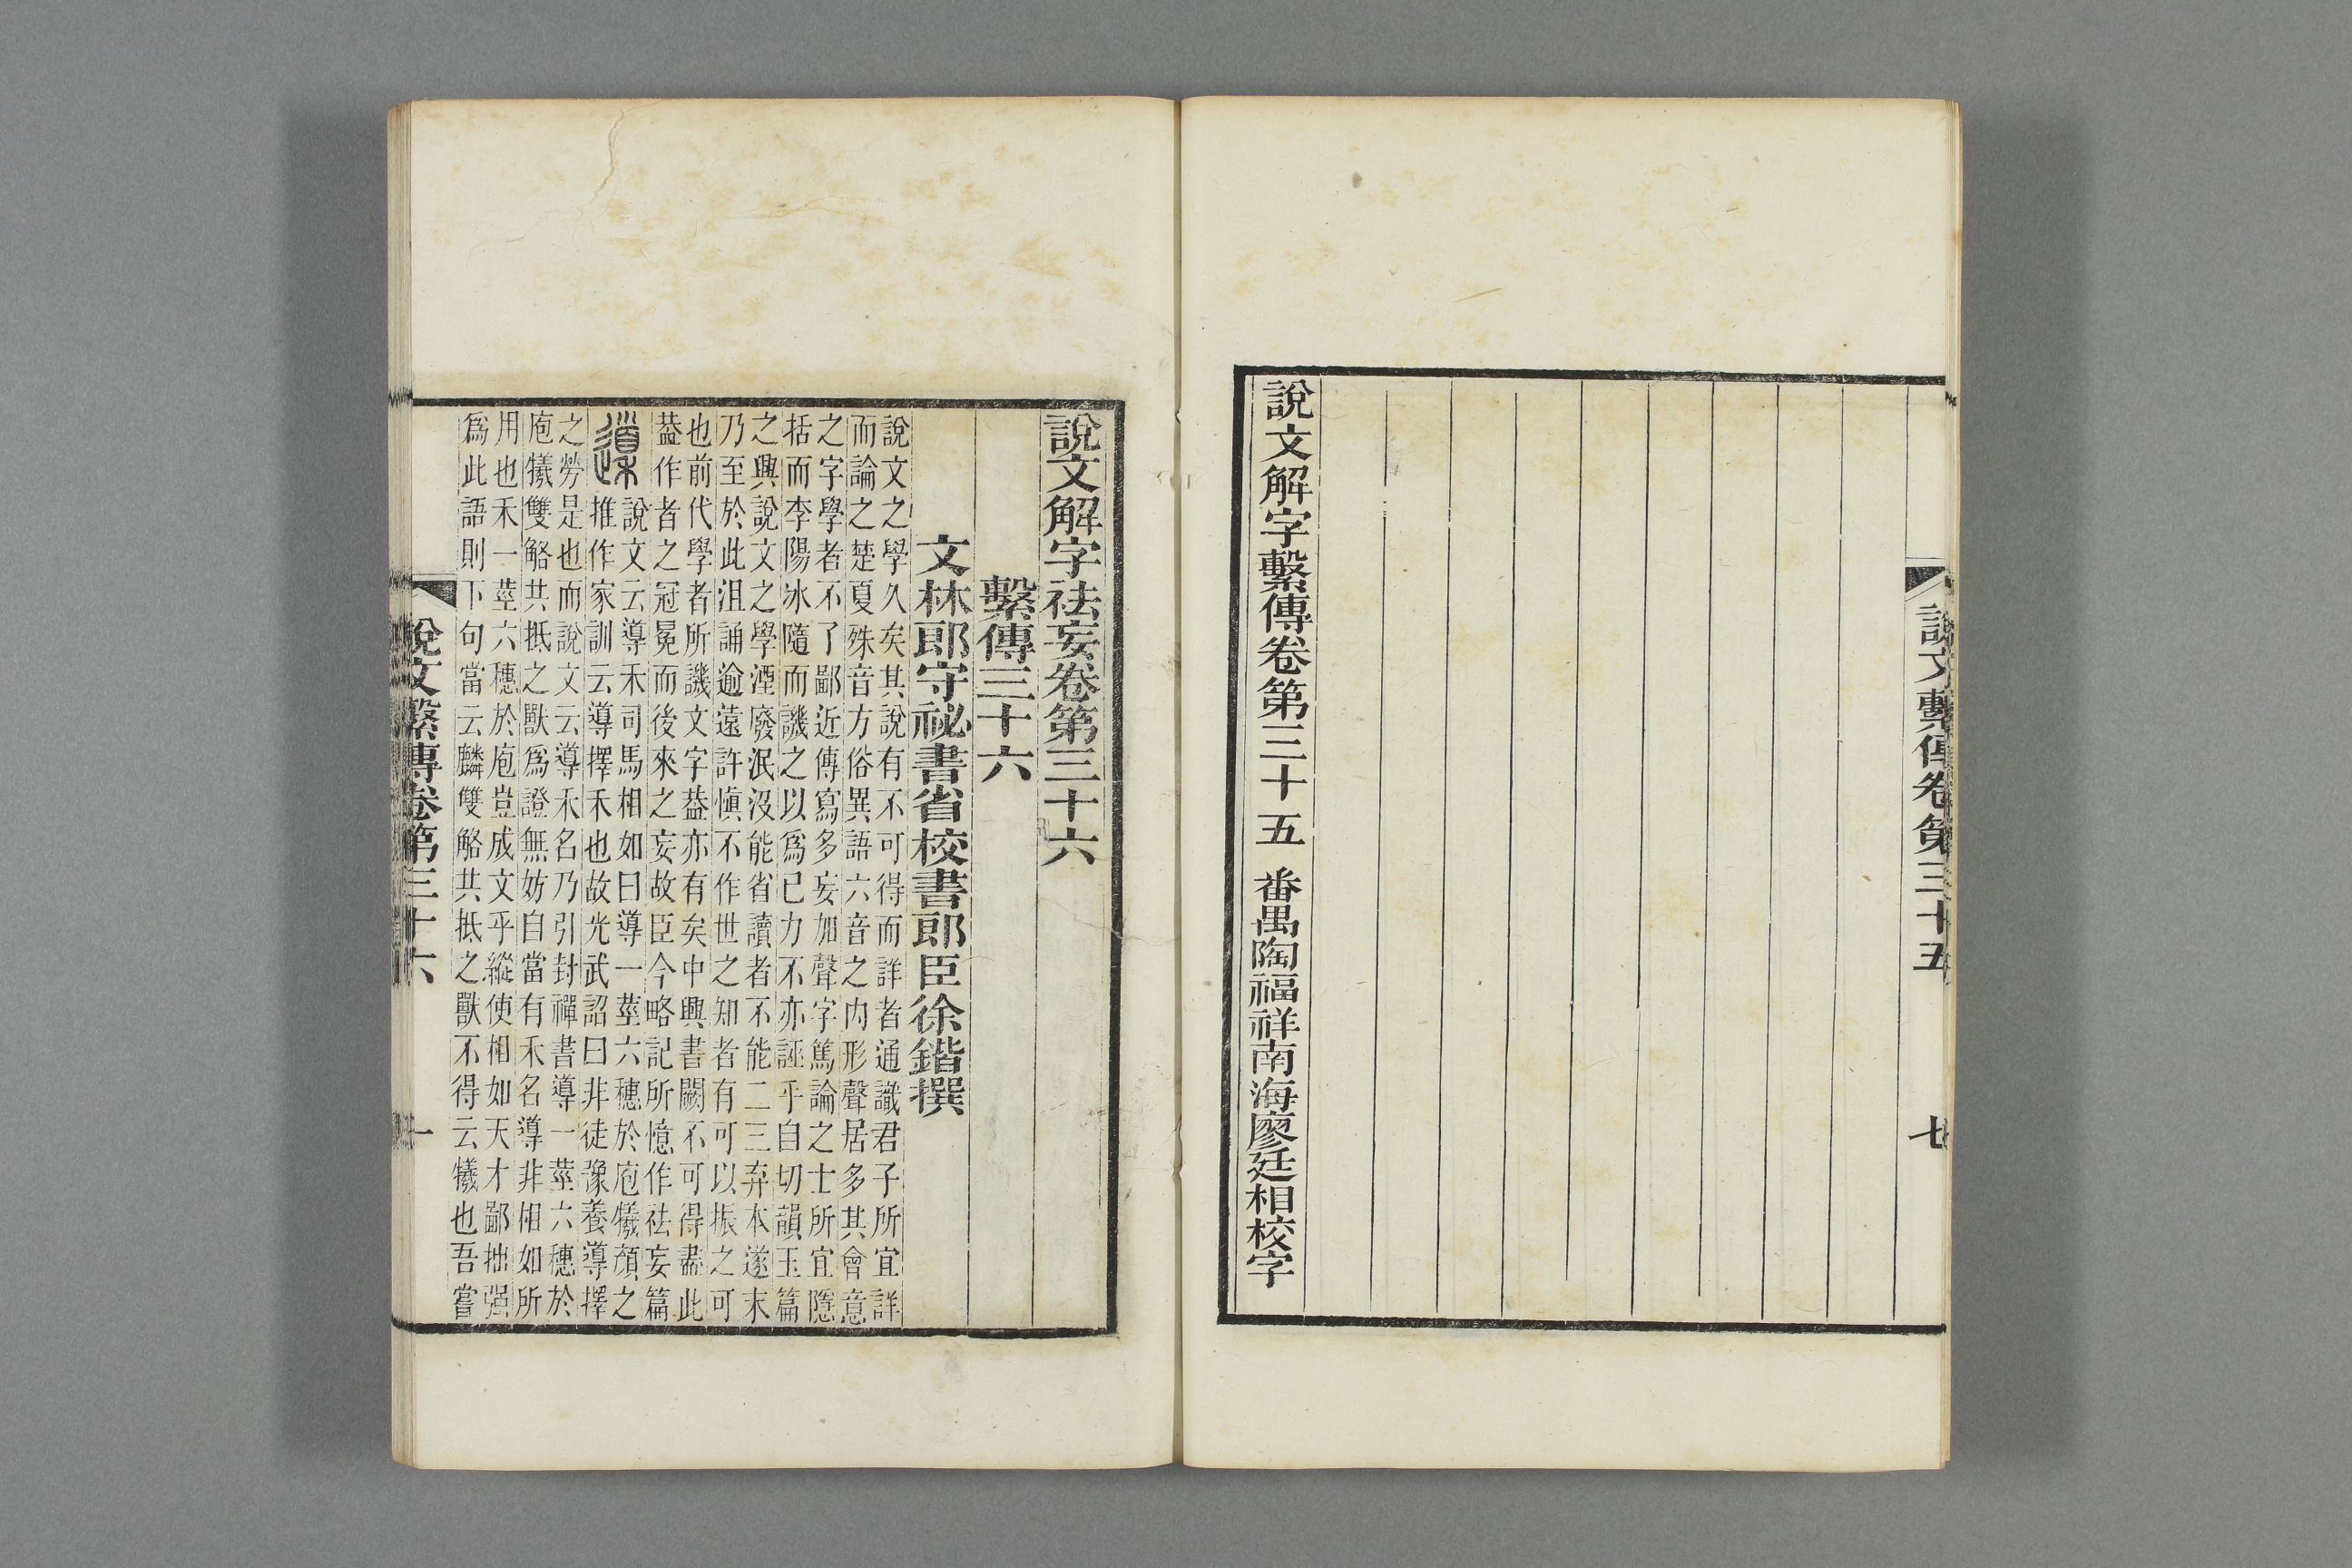 說文繫傳卷第三十五
七
說文解字繫傳卷第三十五 番禺陶福祥南海廖廷相校字
說文解字祛妄卷第三十六
繫傳三十六
文林郎守祕書省校書郎臣徐鍇撰
說文之學久矣其說有不可得而詳者通識君子所宜詳
而論之楚夏殊音方俗異語六音之内形聲居多其會意
之字學者不了鄙近傳寫多妄加聲字篤論之士所宜隱
括而李陽冰隨而譏之以爲已力不亦誣乎自切韻玉篇
之興說文之學湮廢泯沒能省讀者不能二三弃本逐末
乃至於此沮誦逾遠許愼不作世之知者有可以振之可
也前代學者所譏文字葢亦有矣中興書闕不可得盡此
葢作者之冠冕而後來之妄故臣今略記所憶作祛妄篇
說文云導禾司馬相如曰導一莖六穗於庖犧顏之
推作家訓云導擇禾也故光武詔曰非徒豫養導擇
之勞是也而說文云導禾名乃引封禪書導一莖六穗於
庖犧雙觡共抵之獸爲證無妨自當有禾名導非相如所
用也禾一莖六穗於庖豈成文乎縱使相如天才鄙拙强
爲此語則下句當云麟雙觡共抵之獸不得云犧也吾嘗
說文繫傳卷第三十六
一